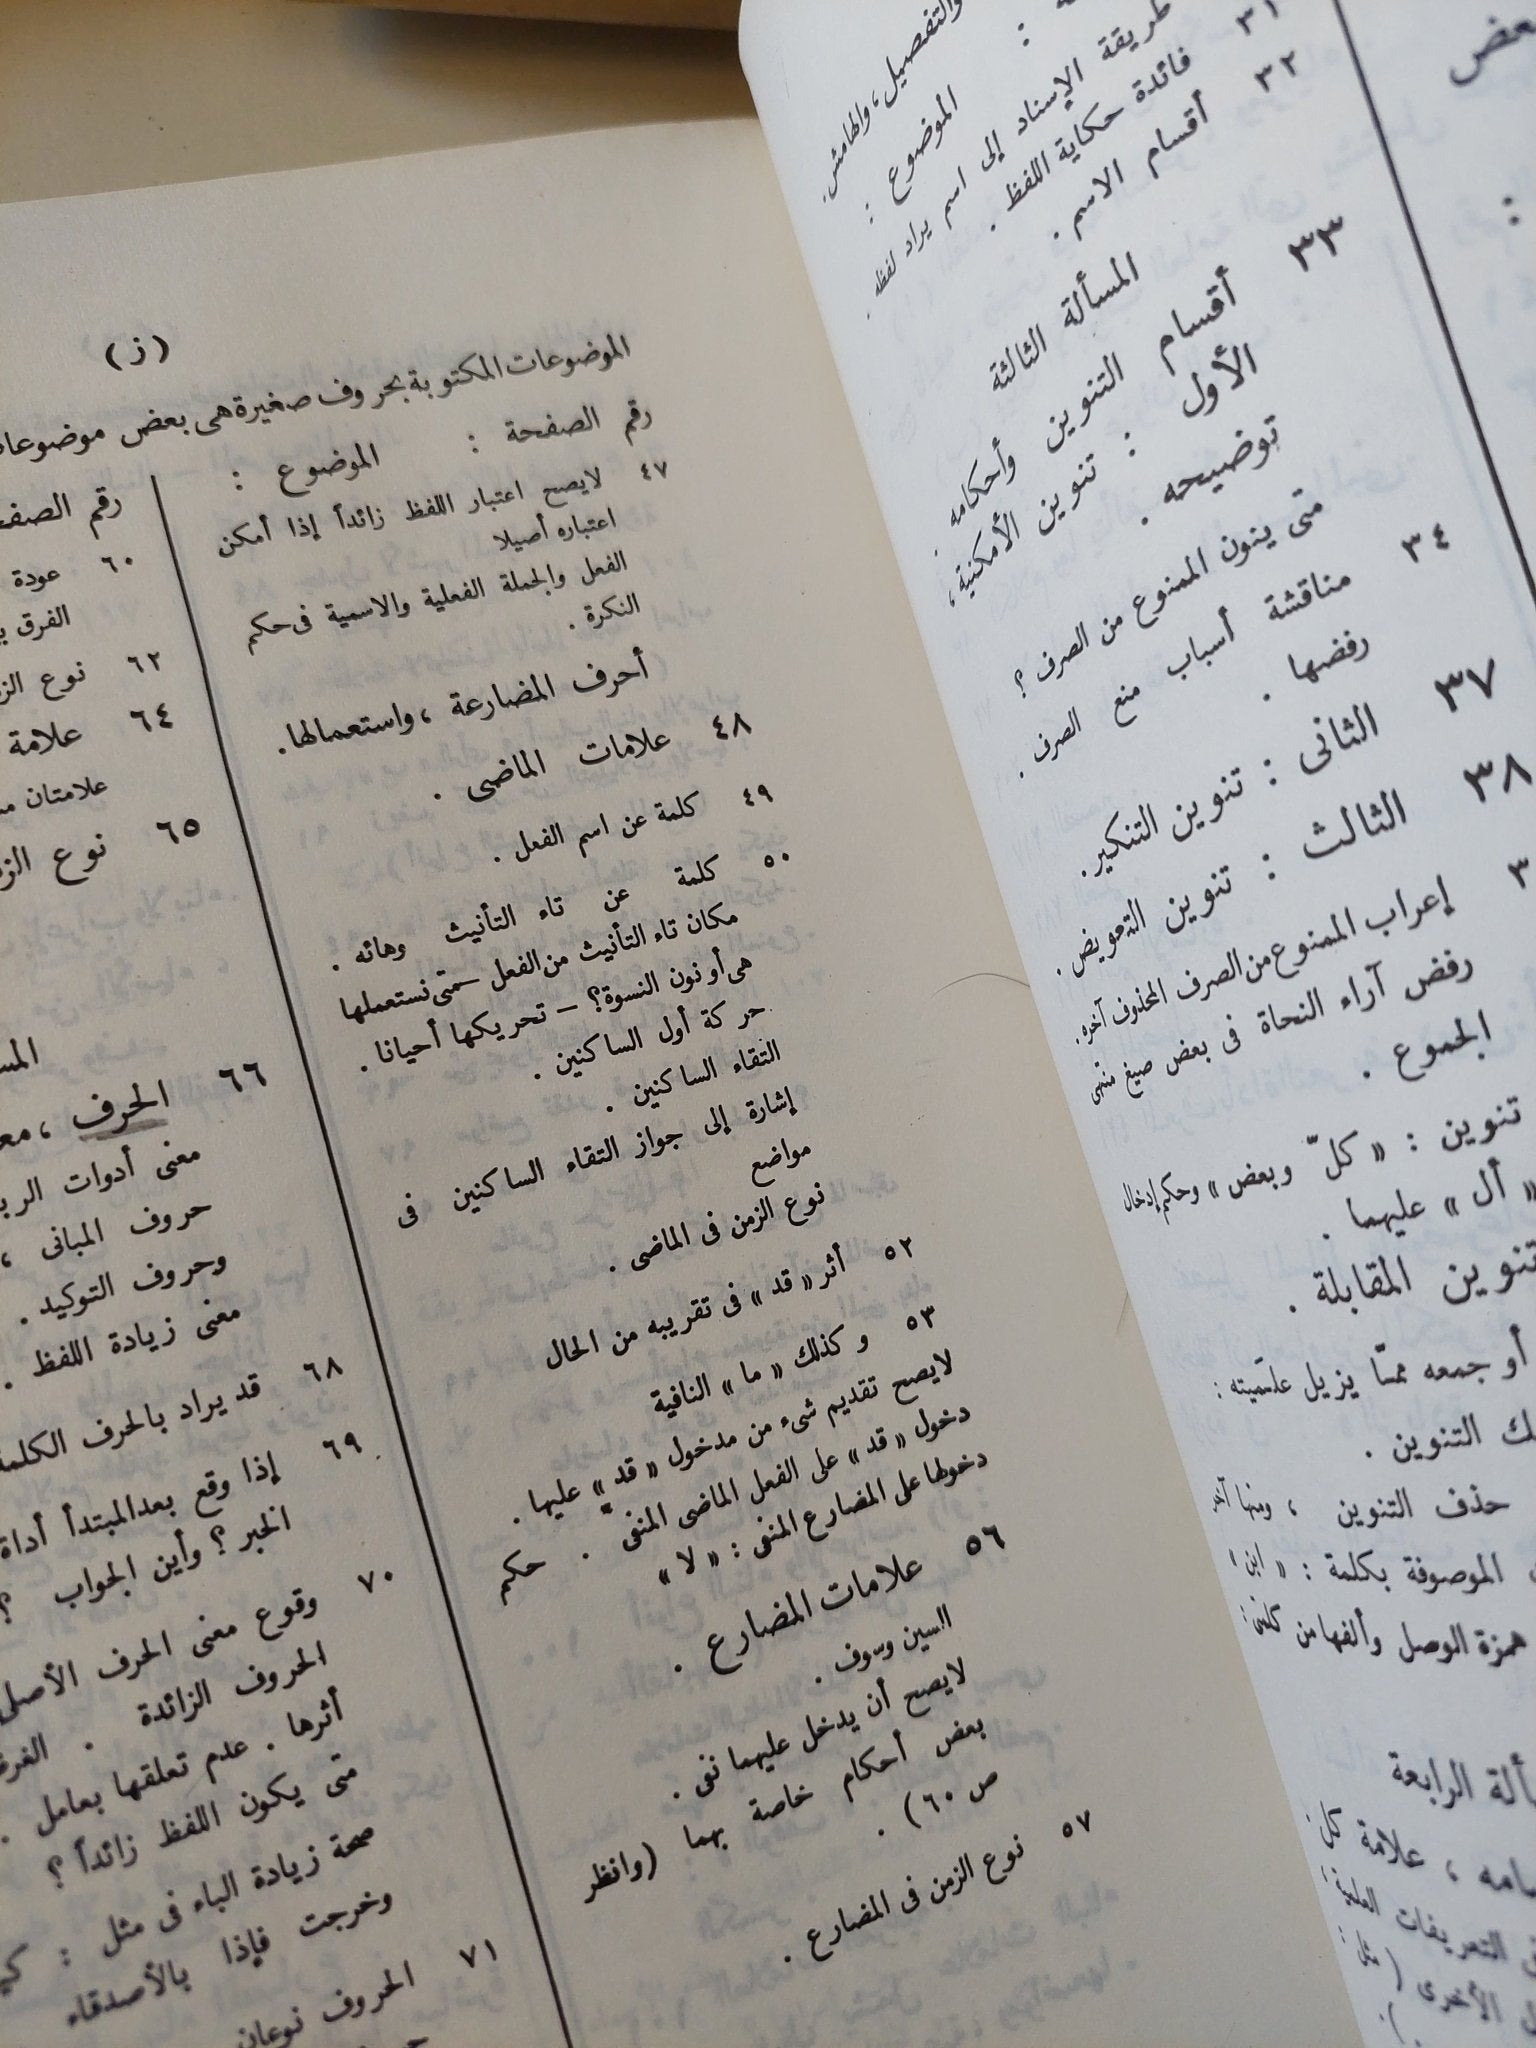 والتفصيل، والهامش.
الموضوع :
طريقة الإسناد إلى اسم يراد لفظه.
٣١ فائدة حكاية اللفظ .
٣٢ أقسام الاسم .
المسألة الثالثة
٣٣ أقسام التنوين وأحكامه .
الأول : تنوين الأمكنية،
توضيحه .
متى ينون الممنوع من الصرف ؟
٣٤ مناقشة أسباب منع الصرف .
رفضها .
٣٧ الثانى : تنوين التنكير.
٣٨ الثالث : تنوين التعويض.
إعراب الممنوع من الصرف المحذوف آخره.
رفض آراء النحاة فى بعض صيغ منتهى
الجموع .
تنوين : « كلّ وبعض » وحكم إدخال
« أل » عليهما .
تنوين المقابلة .
أو جمعه ممّا يزيل علميته :
التنوين .
حذف التنوين ، ومنها آخر
الموصوفة بكلمة : « ابن »
همزة الوصل وألفها من كلمتى:
الرابعة
، علامة كل
التعريفات العلمية؛
الأخرى ( مثل :
بعض
(ز)
الموضوعات المكتوبة بحروف صغيرة هى بعض
رقم الصفحة : الموضوع :
٤٧ لايصح اعتبار اللفظ زائداً إذا أمكن
اعتباره أصيلا
الفعل والجملة الفعلية والاسمية فى حكم
النكرة .
أحرف المضارعة ، واستعمالها.
٤٨ علامات الماضى .
٤٩ كلمة عن اسم الفعل .
٥٠ كلمة عن تاء التأنيث وهائه .
مكان تاء التأنيث من الفعل –متى نستعملها
هى أو نون النسوة؟ – تحريكها أحيانا .
حركة أول الساكنين .
التقاء الساكنين .
إشارة إلى جواز التقاء الساكنين فى
مواضع
نوع الزمن فى الماضى .
٥٢ أثر « قد » فى تقريبه من الحال
٥٣ وكذلك « ما » النافية
لايصح تقديم شىء من مدخول « قد » عليها .
دخول « قد » على الفعل الماضى المنفى . حكم
دخولها على المضارع المنفى : « لا »
٥٦ علامات المضارع .
السين وسوف .
لايصح أن يدخل عليهما نفى .
بعض أحكام خاصة بهما (وانظر
ص ٦٠) .
٥٧ نوع الزمن فى المضارع .
رقم
٦٠ عودة
الفرق
٦٢ نوع
٦٤ علامة
علامتان
٦٥ نوع
٦٦ الحرف ،
معنى أدوات
حروف المبانى ،
وحروف التوكيد .
معنى زيادة اللفظ .
٦٨ قد يراد بالحرف
٦٩ إذا وقع بعد المبتدأ أداة
الخبر ؟ وأين الجواب ؟
٧٠ وقوع معنى الحرف
الحروف الزائدة .
أثرها . عدم تعلقها بعامل .
متى يكون اللفظ زائداً ؟
صحة زيادة الباء فى مثل :
وخرجت فإذا بالأصدقاء
٧١ الحروف نوعان